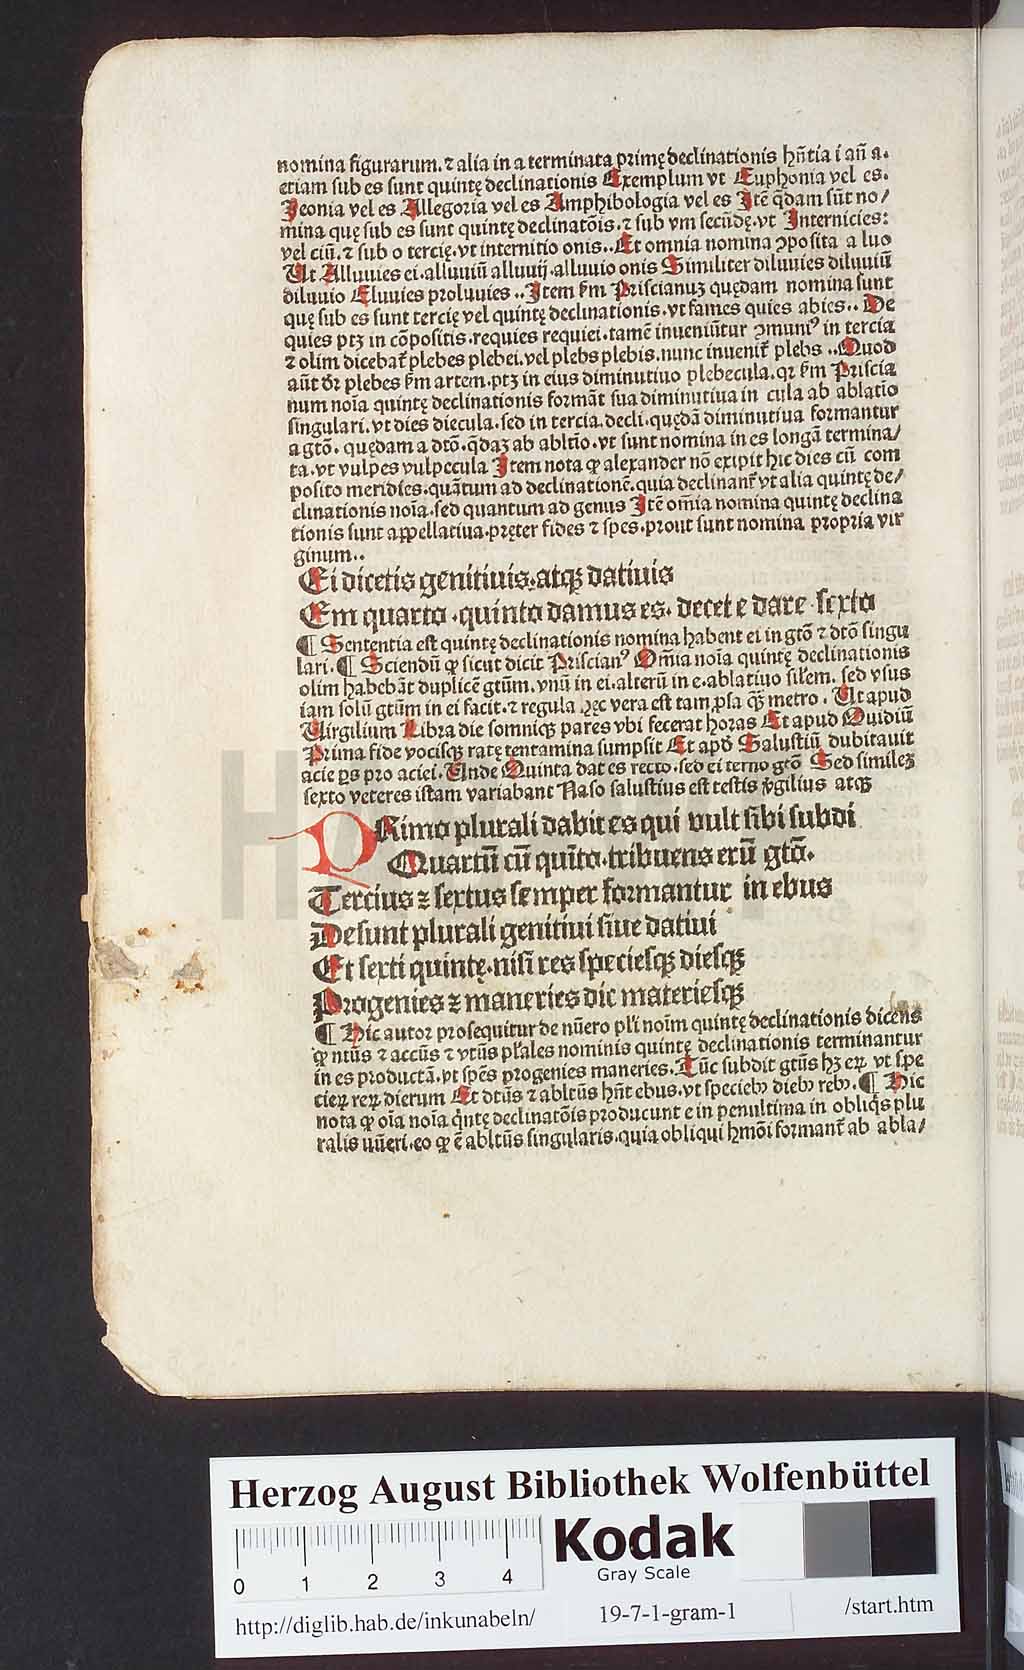 nomina figurarum. ⁊ alia in a terminata primę declinationis hn̄tia i an̄ a.
etiam sub es sunt quintę declinationis Exemplum vt Euphonia vel es.
Jeonia vel es Allegoria vel es Amphibologia vel es Jtē q̄dam sūt no/
mina quę sub es sunt quintę declinatōis. ⁊ sub vm secūdę. vt Internicies:
vel ciū. ⁊ sub o tercię. vt internitio onis.. Et omnia nomina ꝯposita a luo
Ut Alluuies ei. alluuiū alluuij. alluuio onis Similiter diluuies diluuiū
diluuio Eluuies proluuies .. Jtem ẜm Priscianuꝫ quędam nomina sunt
quę sub es sunt tercię vel quintę declinationis. vt fames quies abies.. De
quies ptꝫ in cōpositis. requies requiei. tamē inueniūtur ꝯmuniꝰ in tercia
⁊ olim dicebat᷑ plebes plebei. vel plebs plebis. nunc inuenit᷑ plebs .. Quod
aūt dr̄ plebes ẜm artem. ptꝫ in eius diminutiuo plebecula. qꝛ ẜm Priscia
num noīa quintę declinationis formāt sua diminutiua in cula ab ablatīo
singulari. vt dies diecula. sed in tercia. decli. quędā diminutiua formantur
a gtō. quędam a dtō. q̄daꝫ ab abltīo. vt sunt nomina in es longā termina/
ta. vt vulpes vulpecula Jtem nota ꝙ alexander nō exipit hic dies cū com
posito meridies. quātum ad declinationē. quia declinant᷑ vt alia quintę de/
clinationis noīa. sed quantum ad genus Jtē om̄ia nomina quintę declina
tionis sunt appellatiua. pręter fides ⁊ spes. prout sunt nomina propria vir
ginum..
Ei dicetis genitiuis. atqꝫ datiuis
Em quarto . quinto damus es. decet e dare . sexto
¶ Sententia est quintę declinationis nomina habent ei in gtō ⁊ dtō singu
lari. ¶ Sciendū ꝙ sicut dicit Priscianꝰ Om̄ia noīa quintę declinationis
olim habebāt duplicē gtūm. vnū in ei. alterū in e. ablatiuo siłem. sed vsus
iam solū gtūm in ei facit. ⁊ regula hęc vera est tam ꝓsa q̄ꝫ metro . Ut apud
Uirgilium Libra die somniqꝫ pares vbi fecerat horas Et apud Ouidiū
Prima fide vocisqꝫ ratę tentamina sumpsit Et apd̄ Salustiū dubitauit
acie ps pro aciei. Unde Quinta dat es recto. sed ei terno gtō Sed simileꝫ
sexto veteres istam variabant Naso salustius est testis v̓gilius atqꝫ
PRimo plurali dabit es qui vult sibi subdi
Quartū cū quīto. tribuens erū gtō.
Tercius ⁊ sextus semper formantur in ebus
Desunt plurali genitiui siue datiui
Et sexti quintę. nisi res speciesqꝫ diesqꝫ
Progenies ⁊ maneries dic materiesqꝫ
¶ Hic autor prosequitur de nūero pl̓i noīm quintę declinationis dicens
ꝙ ntūs ⁊ accūs ⁊ vtūs pl̓ales nominis quintę declinationis terminantur
in es productā. vt spēs progenies maneries. Tūc subdit gtūs hꝫ eꝝ vt spe
cieꝝ reꝝ dierum Et dtūs ⁊ abltūs hn̄t ebus. vt specieb᷒ dieb᷒ reb᷒. ¶ Hic
nota ꝙ oīa noīa q̄ntę declinatōis producunt e in penultima in obliq̄s plu
ralis nūeri. eo ꝙ ē abltūs singularis. quia obliqui hmōi formant᷑ ab abla/
Herzog August Bibliothek Wolfenbüttel
Kodak
Gray Scale
0 1 2 3 4
http://diglib.hab.de/inkunabeln/
19-7-1-gram-1
/start.htm